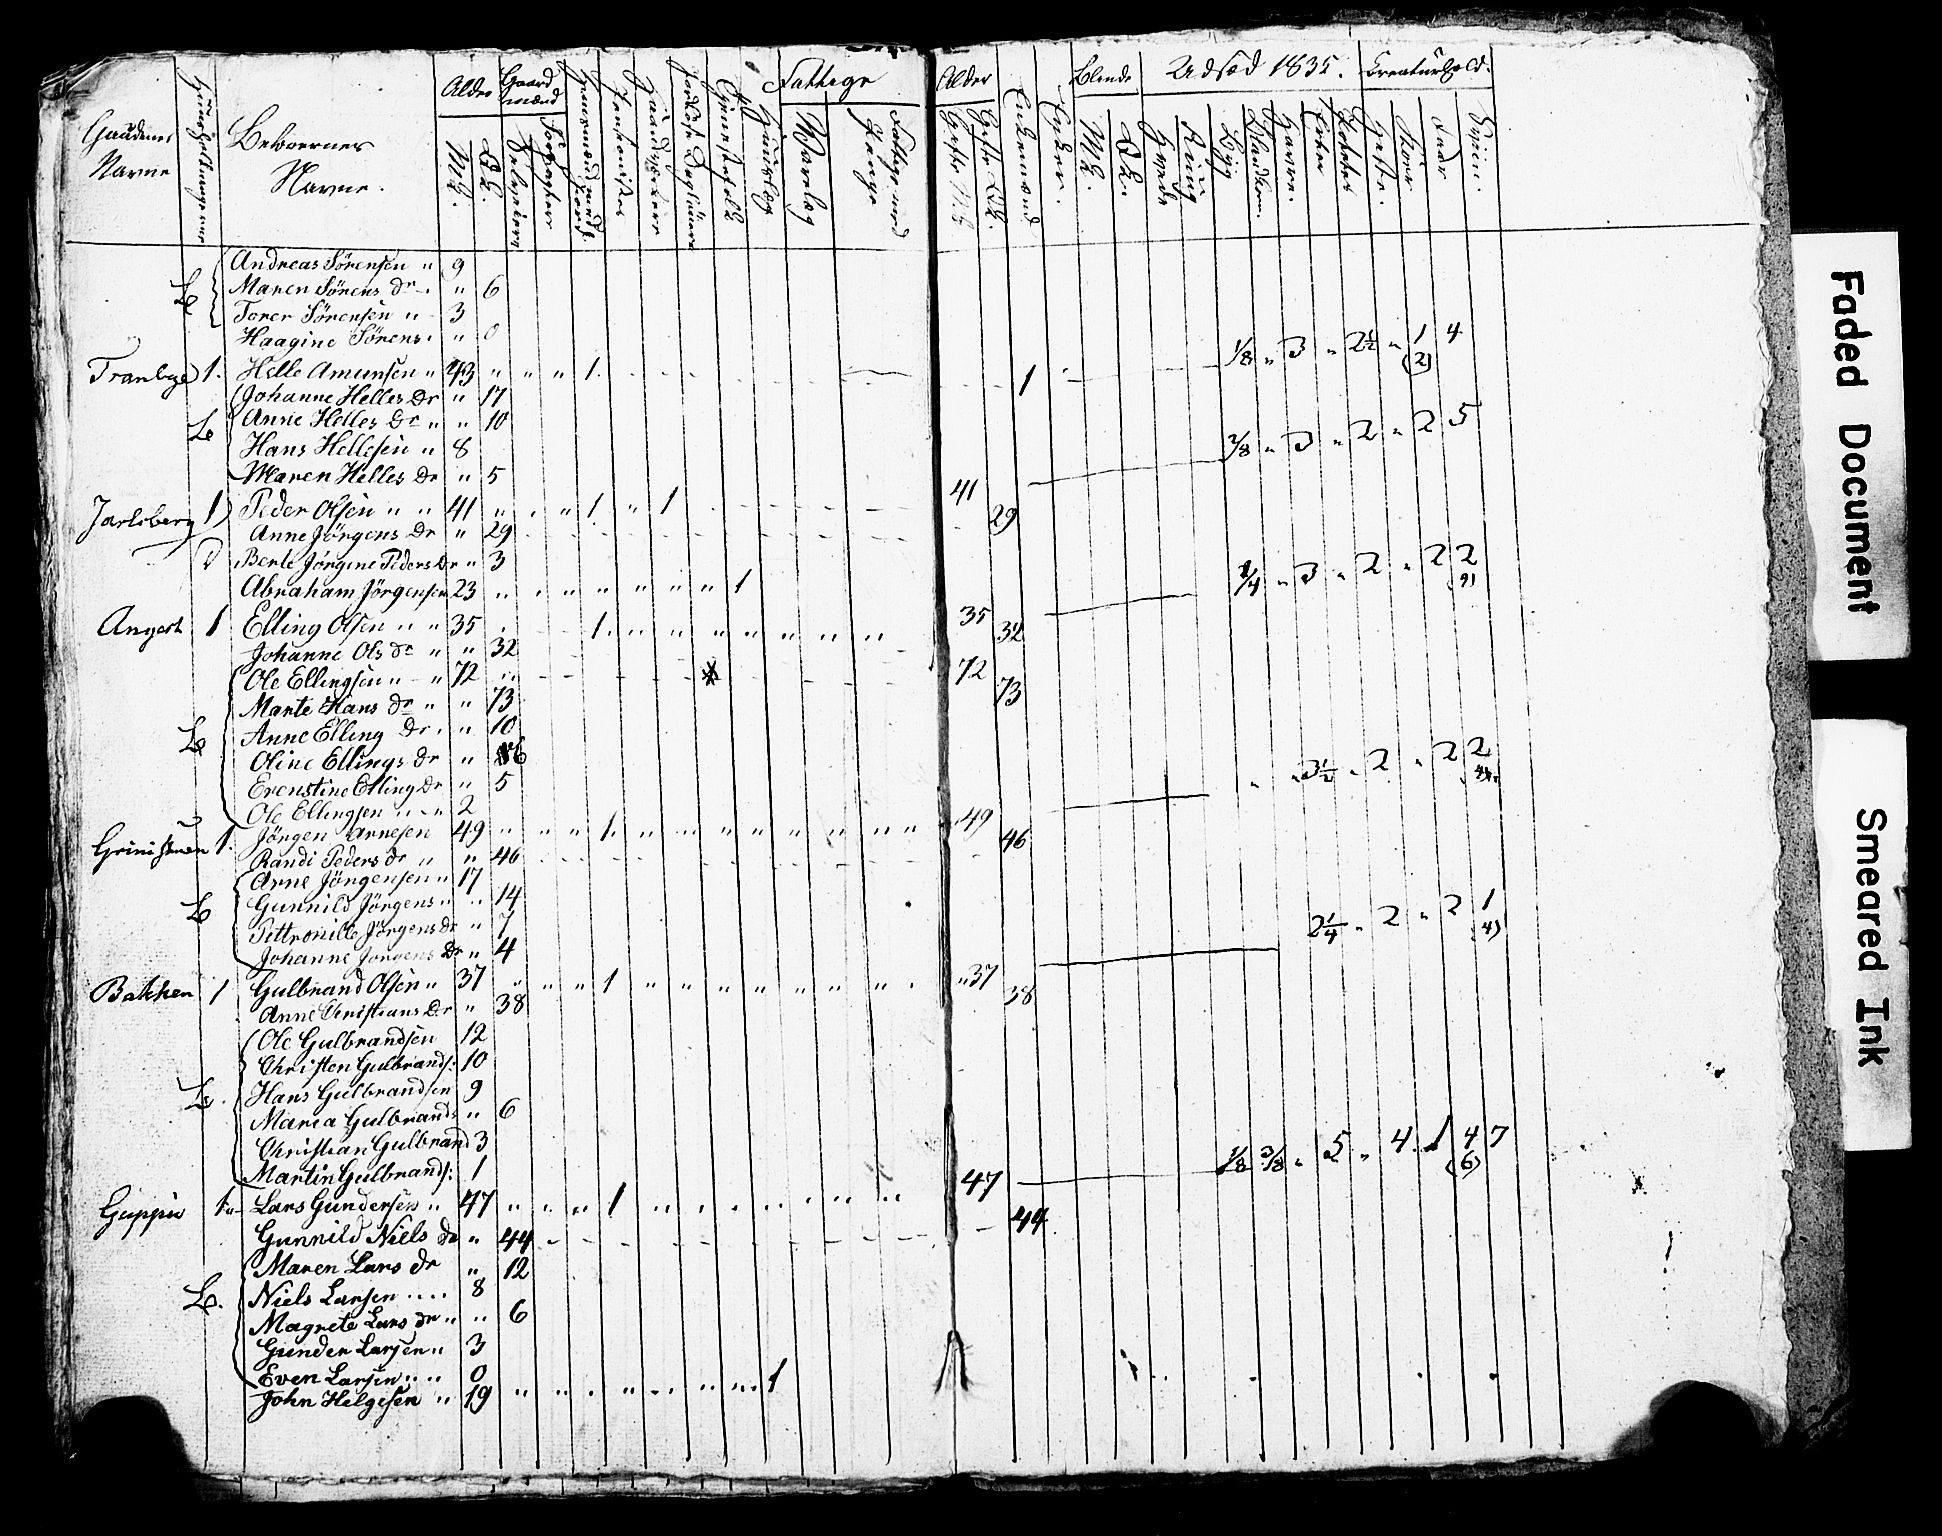 Gaardenes Navne
Beboernes Navne.
Alder
Gaardmænd
Fattige
Mk.
Qk.
Selveiere
Pensionister
Alder
Enkemænd
Enker.
Blinde
Udsæd 1835.
Creaturhold.
Mk.
Qk.
Hvede
Rüg
Byg
Blandkorn.
Havre.
Erter
Poteter
Heste.
Kiør
Faar
Sviin.
Andreas Sørensen " 9
Maren Sørens Dr " 6
Torer Sørensen " 3
Haagine Sørens " 0
Tranbye 1. Helle Amunsen " 43 " " " 1. 1 1/8 " 3 " 2½ " 1 (2) 4
Johanne Helles Dr " 17
Anne Helles Dr " " 10
Hans Hellesen " 8
Maren Helles Dr " 5
Jarlsberg 1 Peder Olsen " " 41 " " " 1 " 1 41 2/8 " 3 " 2 " 2 5
Anne Jörgens Dr " 29 29
Berte Jörgine Peders Dr " 3
Abraham Jörgensen 23 " " " " " " " 1
1/4 " 3 " 2 " 2 2
Elling Olsen " " 35 1. " " " " " " " " 35
Johanne Ols Dr " " 32 32
Ole Ellingsen " " 72 72
Marte Hans Dr " " 73 73
Anne Elling Dr. " 10
Oline Ellings Dr "
Elling Dr " 5
Ole Ellingsen " " 2
1. Jörgen Arnesen 49 " " " 1. " " " " " " " " 49 3½ " 2 " 2 2
Randi Peders Dr " " 46 46
Arne Jörgensen " 17
Gunnild Jörgens " " 14
Pettronille Jörgens Dr " 7
Johanne Jörgens Dr " 4
Bakken 1 Gulbrand Olsen " 37 " " " 1 " " " " " " " " 37 2¼ " 2 " 2 1 (4)
Anne Christians Dr " 38 38
Ole Gulbrandsen 12
Christen Gulbrands: 10
Hans Gulbrandsen 9
Maria Gulbrands " 6
Christian Gulbrand 3
Martin Gulbrands: 1
Lars Gundersen " 47 " " " 1 " " " " " " " 47 1/8 3/8 " 5 " 4. 1 4 (6) 7
Gunnild Niels Dr " 44 44
Maren Lars Dr " 12
Niels Larsen 8
Magrete Lars Dr " " 6
Gunder Larsen " 3
Even Larsen " " 0
John Helgesen " 19 " " " " " " " 1
Faded Document
Smeared Ink